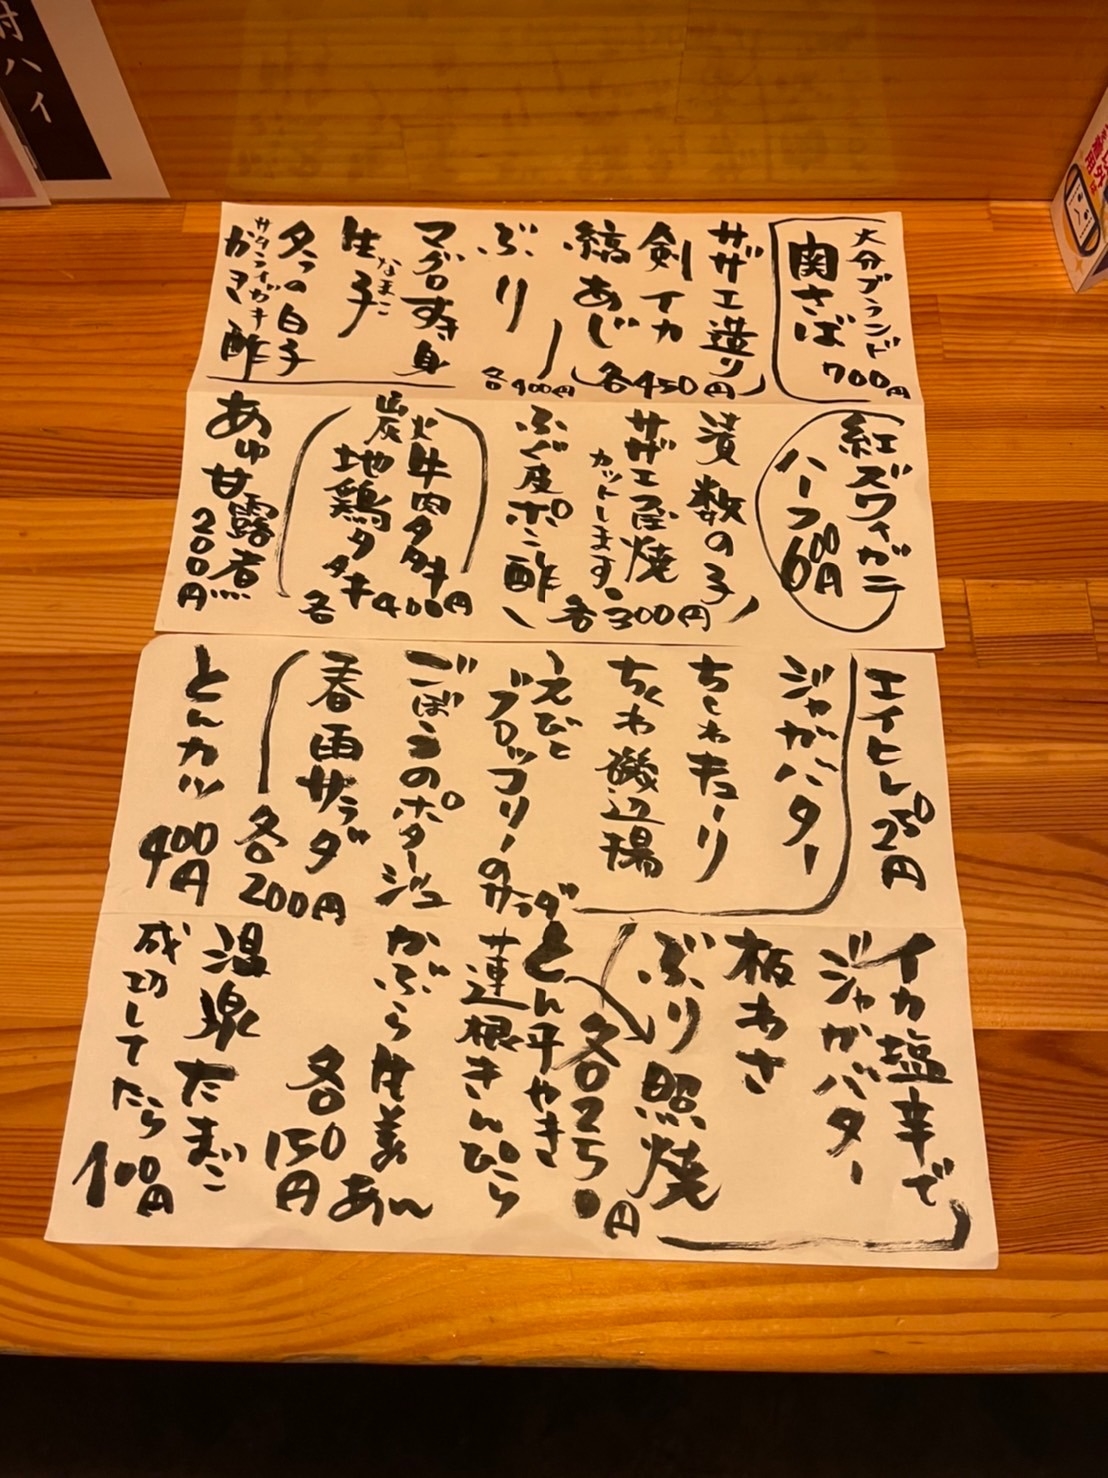 大分ブランド
関さば
700円
サザエ造り
剣イカ
縞あじ
各450円
ぶり
マグロすき身
生子
なまこ
タラの白子
サタライガキ
かき酢
各400円
紅ズワイガニ
ハーフ600円
漬数の子
サザエつぼ焼
カットします。
ふぐ皮ポン酢
各300円
牛肉タタキ
炭火
地鶏タタキ
各400円
あゆ甘露煮
200円
エイヒレ250円
ジャガバター
ちくわキューリ
ちくわ磯辺揚
えびと
ブロッコリーのサラダ
ごぼうのポタージュ
春雨サラダ
各200円
とんカツ
400円
イカ塩辛で
ジャガバター
板わさ
ぶり照焼
各250円
とん平やき
蓮根きんぴら
かぶら生姜あん
各150円
温泉たまご
成功してたら
100円
村ハイ